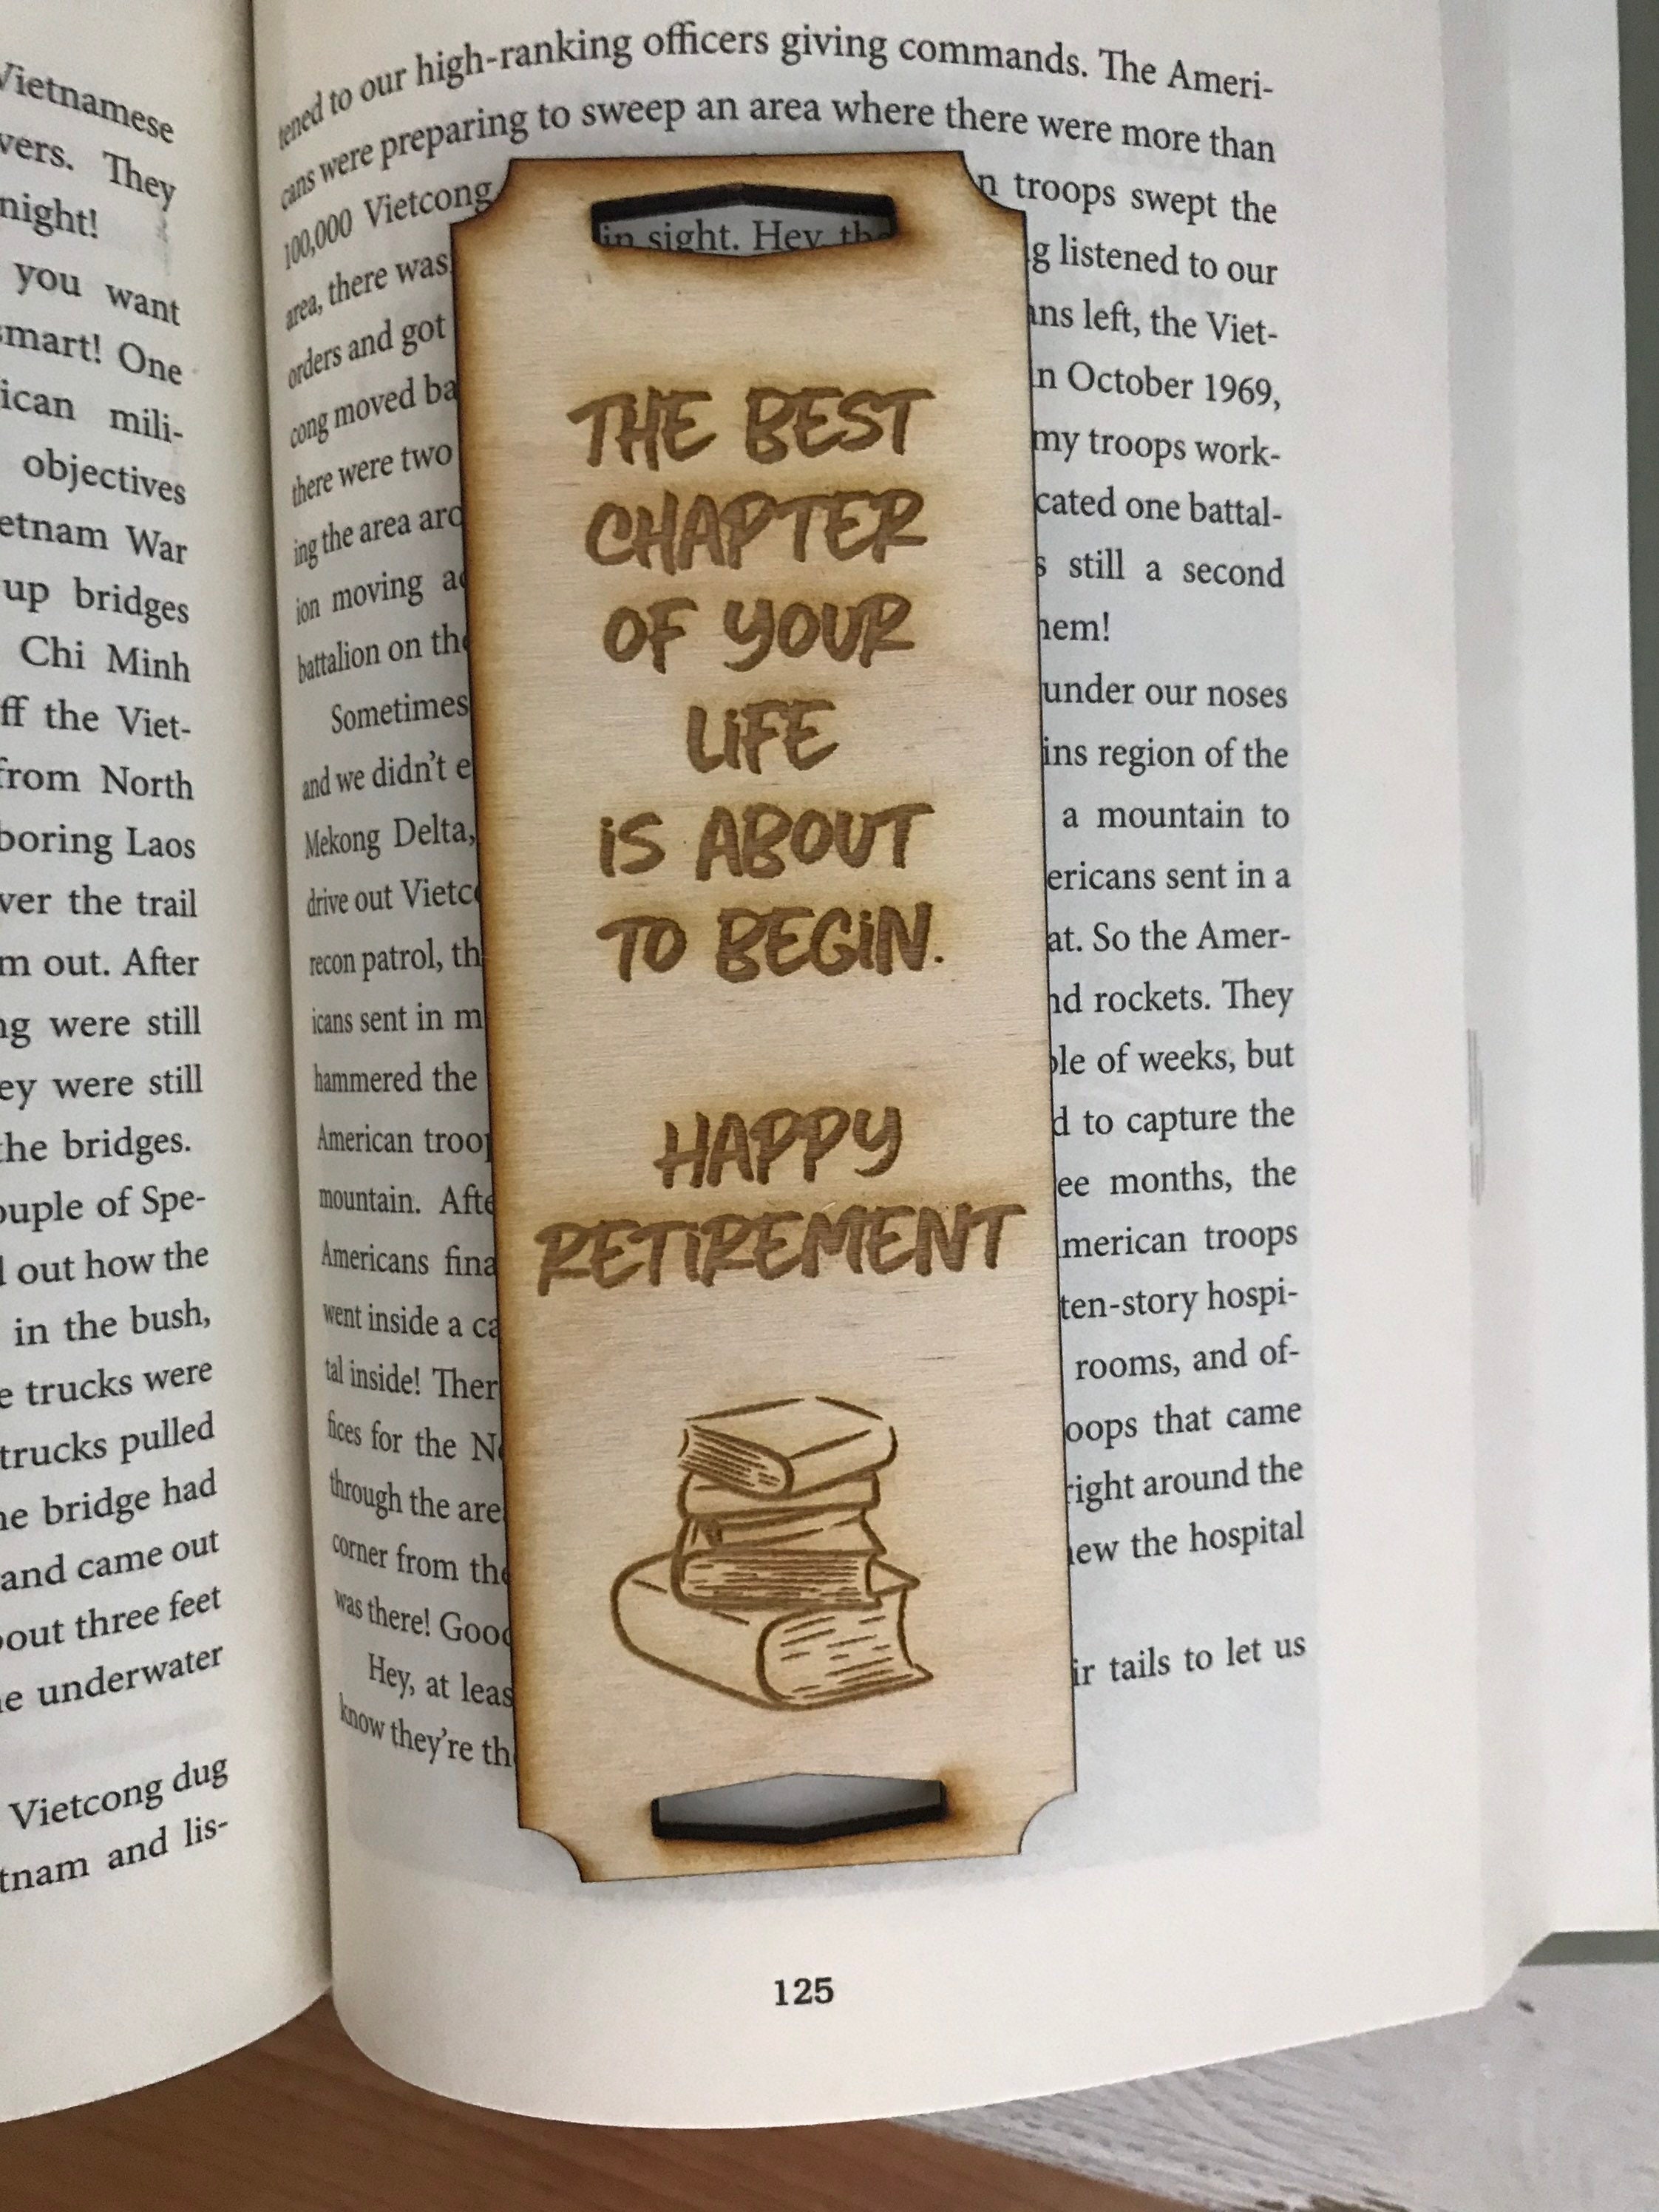 Vietnamese
vers. They
night!
you want
smart! One
ican mili-
objectives
etnam War
up bridges
Chi Minh
ff the Viet-
from North
boring Laos
ver the trail
m out. After
ng were still
ey were still
the bridges.
ouple of Spe-
out how the
in the bush,
e trucks were
trucks pulled
he bridge had
and came out
bout three feet
he underwater
Vietcong dug
tnam and lis-
tened to our high-ranking officers giving commands. The Ameri-
cans were preparing to sweep an area where there were more than
100,000 Vietcong n troops swept the
area, there was in sight. Hey, the g listened to our
orders and got ans left, the Viet-
cong moved ba in October 1969,
there were two my troops work-
ing the area aro cated one battal-
ion moving ac s still a second
battalion on the hem!
Sometimes under our noses
and we didn't e ins region of the
Mekong Delta, a mountain to
drive out Vietco ericans sent in a
recon patrol, th at. So the Amer-
icans sent in m nd rockets. They
hammered the ple of weeks, but
American troop d to capture the
mountain. Afte ee months, the
Americans fina merican troops
went inside a ca ten-story hospi-
tal inside! Ther rooms, and of-
fices for the No oops that came
through the are right around the
corner from the new the hospital
was there! Good
Hey, at leas ir tails to let us
know they're th
125
THE BEST
CHAPTER
OF YOUR
LIFE
IS ABOUT
TO BEGIN.
HAPPY
RETIREMENT